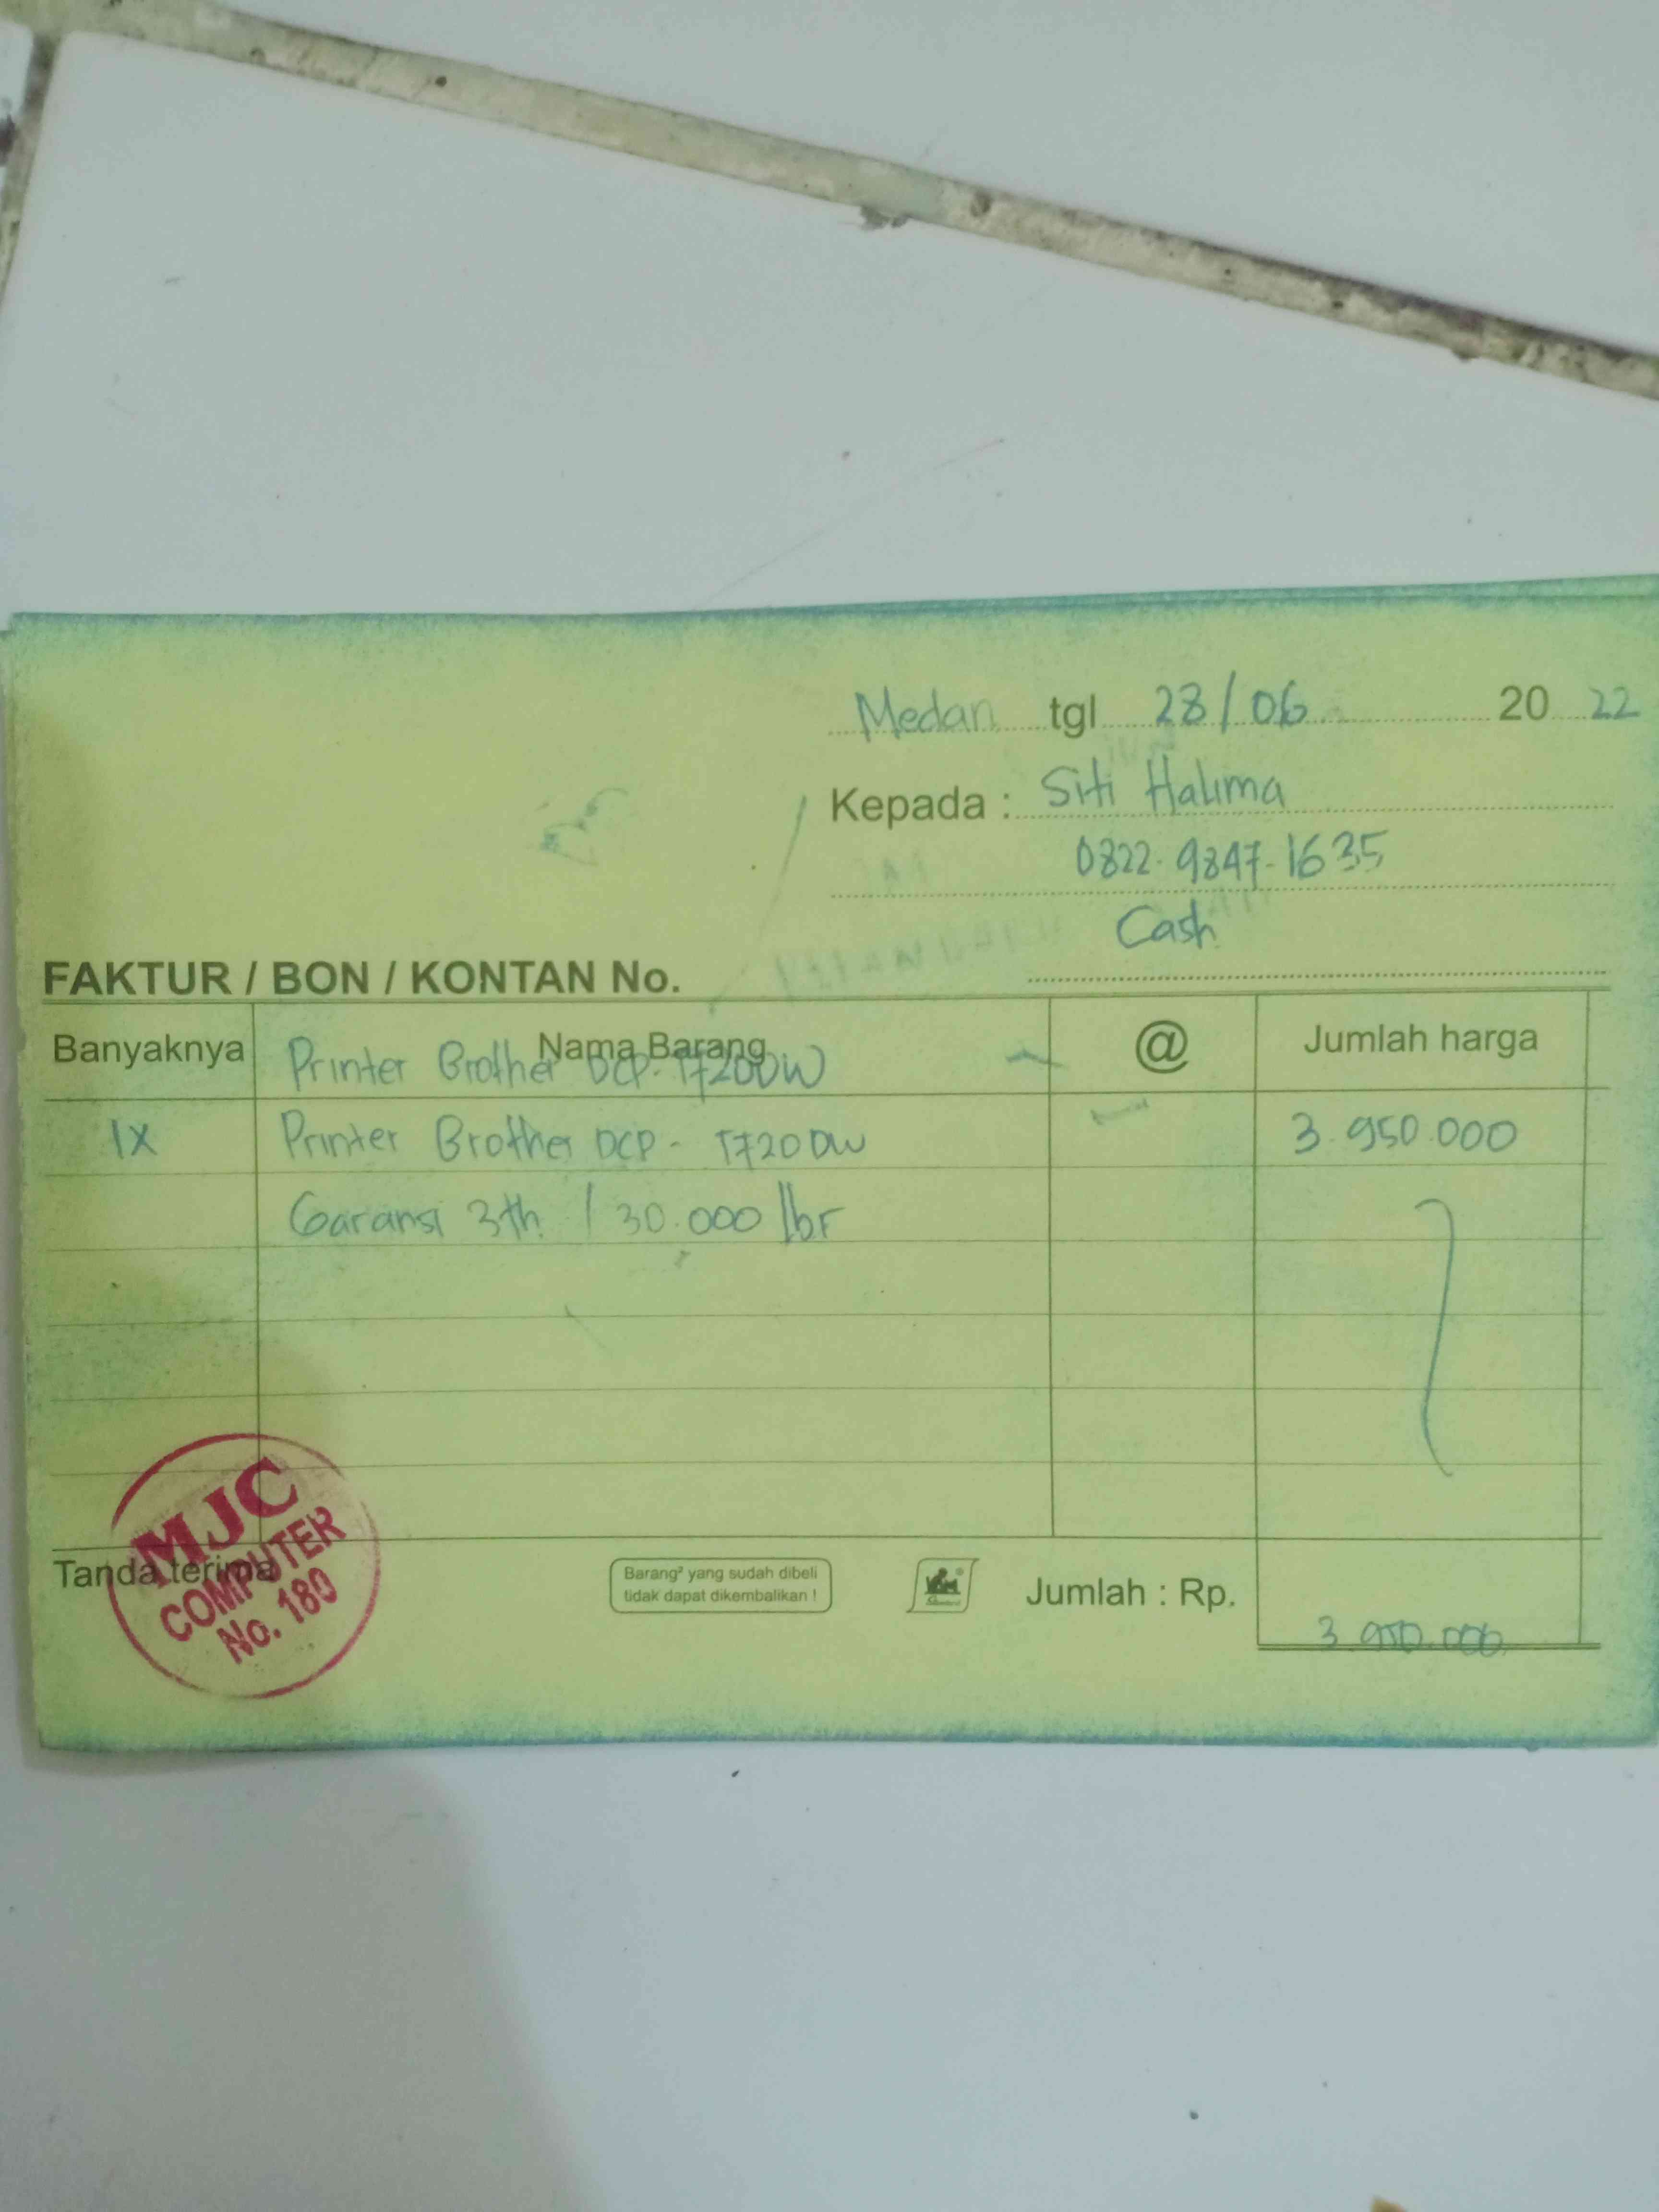 Medan tgl 28/06 20 22
Kepada : Siti Halima
0822-9847-1635
Cash
FAKTUR / BON / KONTAN No.
Banyaknya Nama Barang @ Jumlah harga
Printer Brother DCP-T720DW
1X Printer Brother DCP - T720DW 3.950.000
Garansi 3th / 30.000 lbr
Tanda terima
MJC
COMPUTER
No. 180
Barang² yang sudah dibeli
tidak dapat dikembalikan !
Jumlah : Rp. 3.950.000